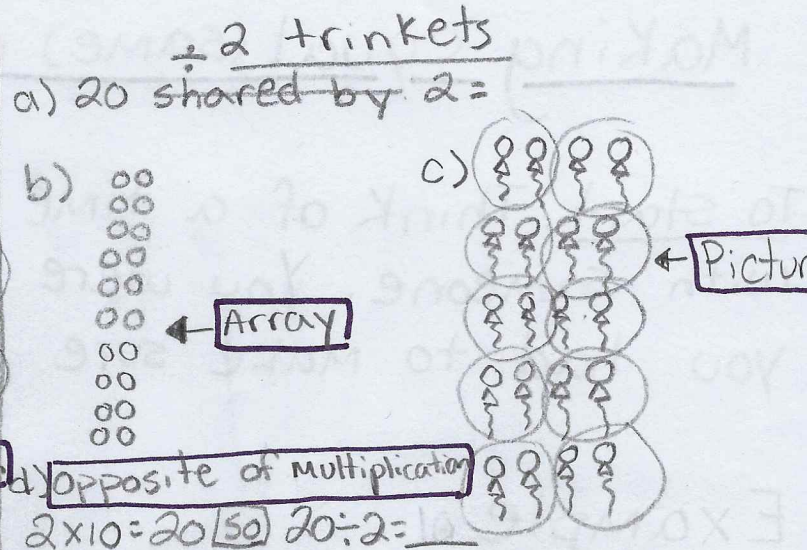 ÷ 2 trinkets
a) 20 shared by 2 =
b)
c)
Array
Pictur
d) Opposite of Multiplication
2×10=20 so 20÷2=